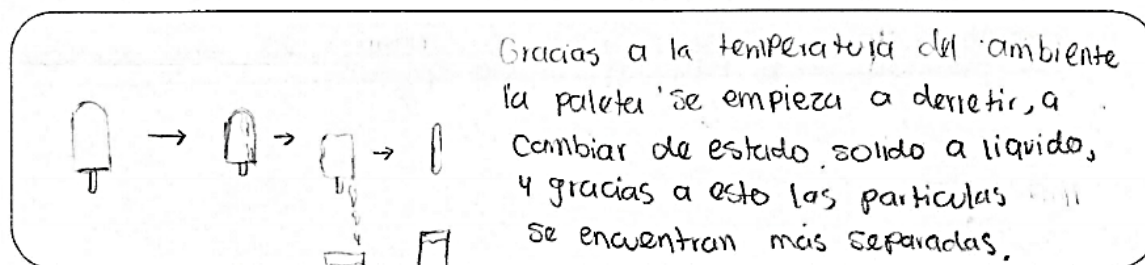 Gracias a la temperatura del ambiente
la paleta se empieza a derretir, a
Cambiar de estado solido a liquido,
y gracias a esto las particulas
se encuentran más separadas.